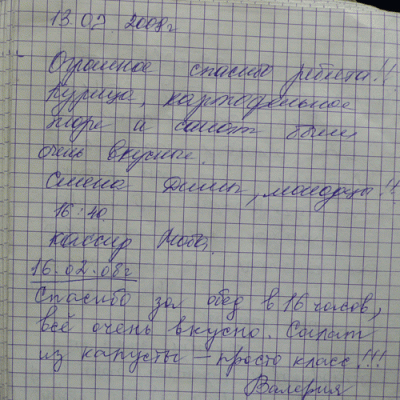 13.02.2008г
Огромное спасибо ребята!!
Курица, картофельное
пюре и салат были
очень вкусные.
Смена Димы, молодцы!!
16:40
кассир
16.02.08г
Спасибо за обед в 16 часов,
всё очень вкусно. Салат
из капусты – просто класс!!!
Валерия